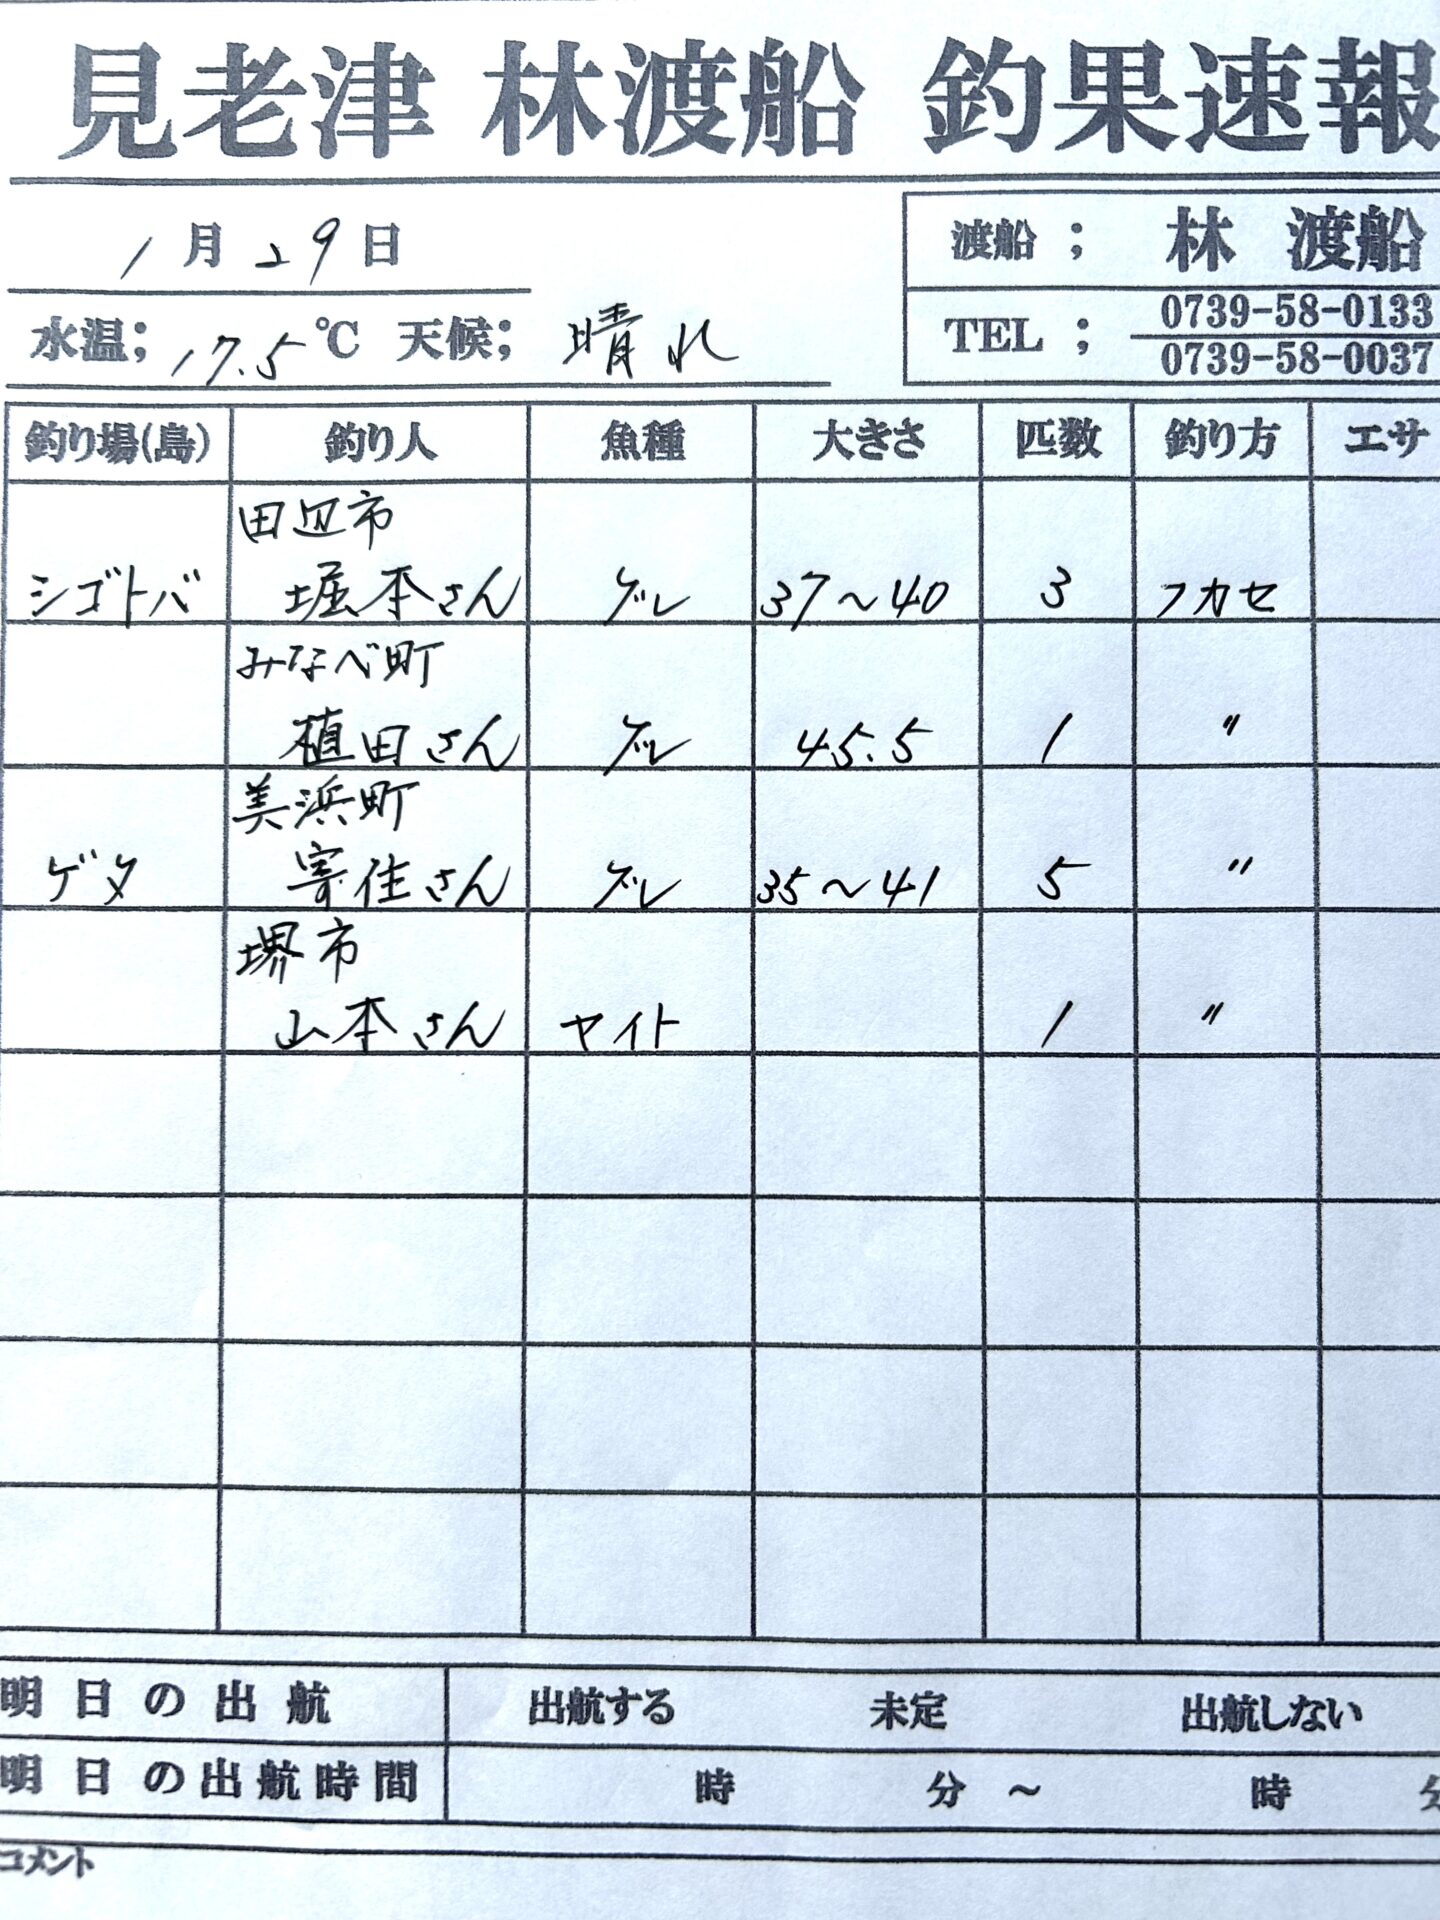 見老津 林渡船 釣果速報
1月29日
渡船 ; 林 渡船
水温; 17.5℃ 天候; 晴れ
TEL ; 0739-58-0133
0739-58-0037
釣り場(島) 釣り人 魚種 大きさ 匹数 釣り方 エサ
田辺市
シゴトバ 堀本さん グレ 37〜40 3 フカセ
みなべ町
植田さん グレ 45.5 1 〃
美浜町
ゲタ 寄住さん グレ 35〜41 5 〃
堺市
山本さん ヤイト 1 〃
明日の出航 出航する 未定 出航しない
明日の出航時間 時 分 〜 時 分
コメント